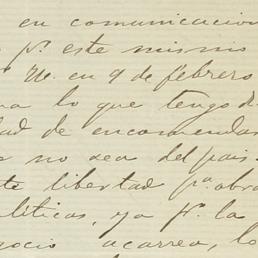 en comunicacion
pr. este mismo
Ue. en 9 de febrero
lo que tengo
dad de encomendar
no sea del pais
libertad pa. obra
líticas, ya pr. la
gocio acarrea, lo